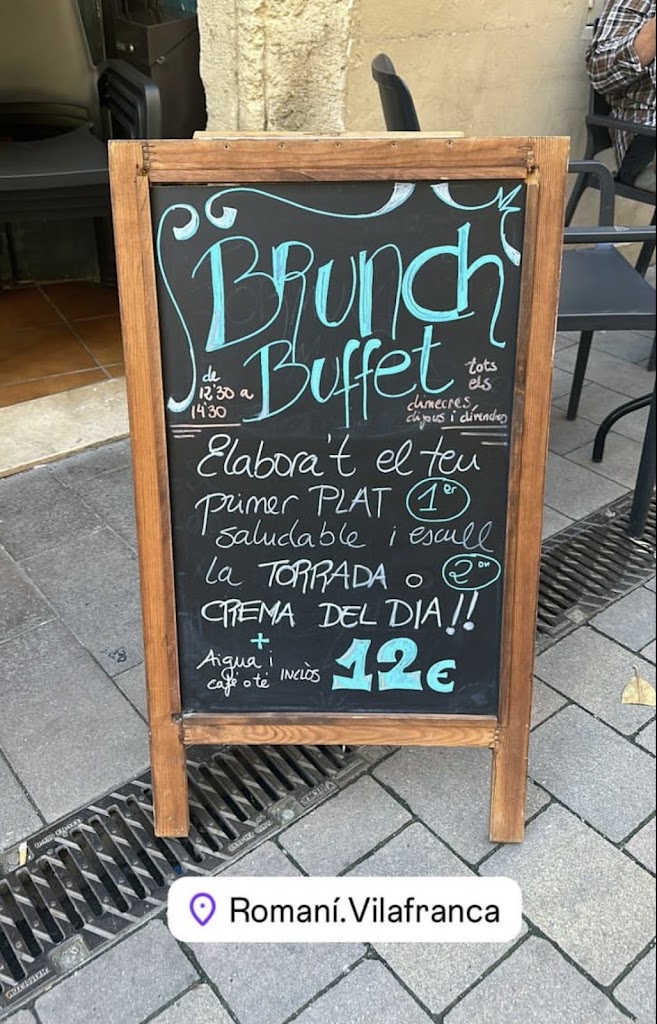 Brunch
Buffet
de
12'30 a
14'30
tots
els
dimecres,
dijous i divendres
Elabora't el teu
primer PLAT 1er
saludable i escull
la TORRADA o 2on
CREMA DEL DIA!!
+
Aigua i
café o té INCLÒS 12€
Romaní.Vilafranca